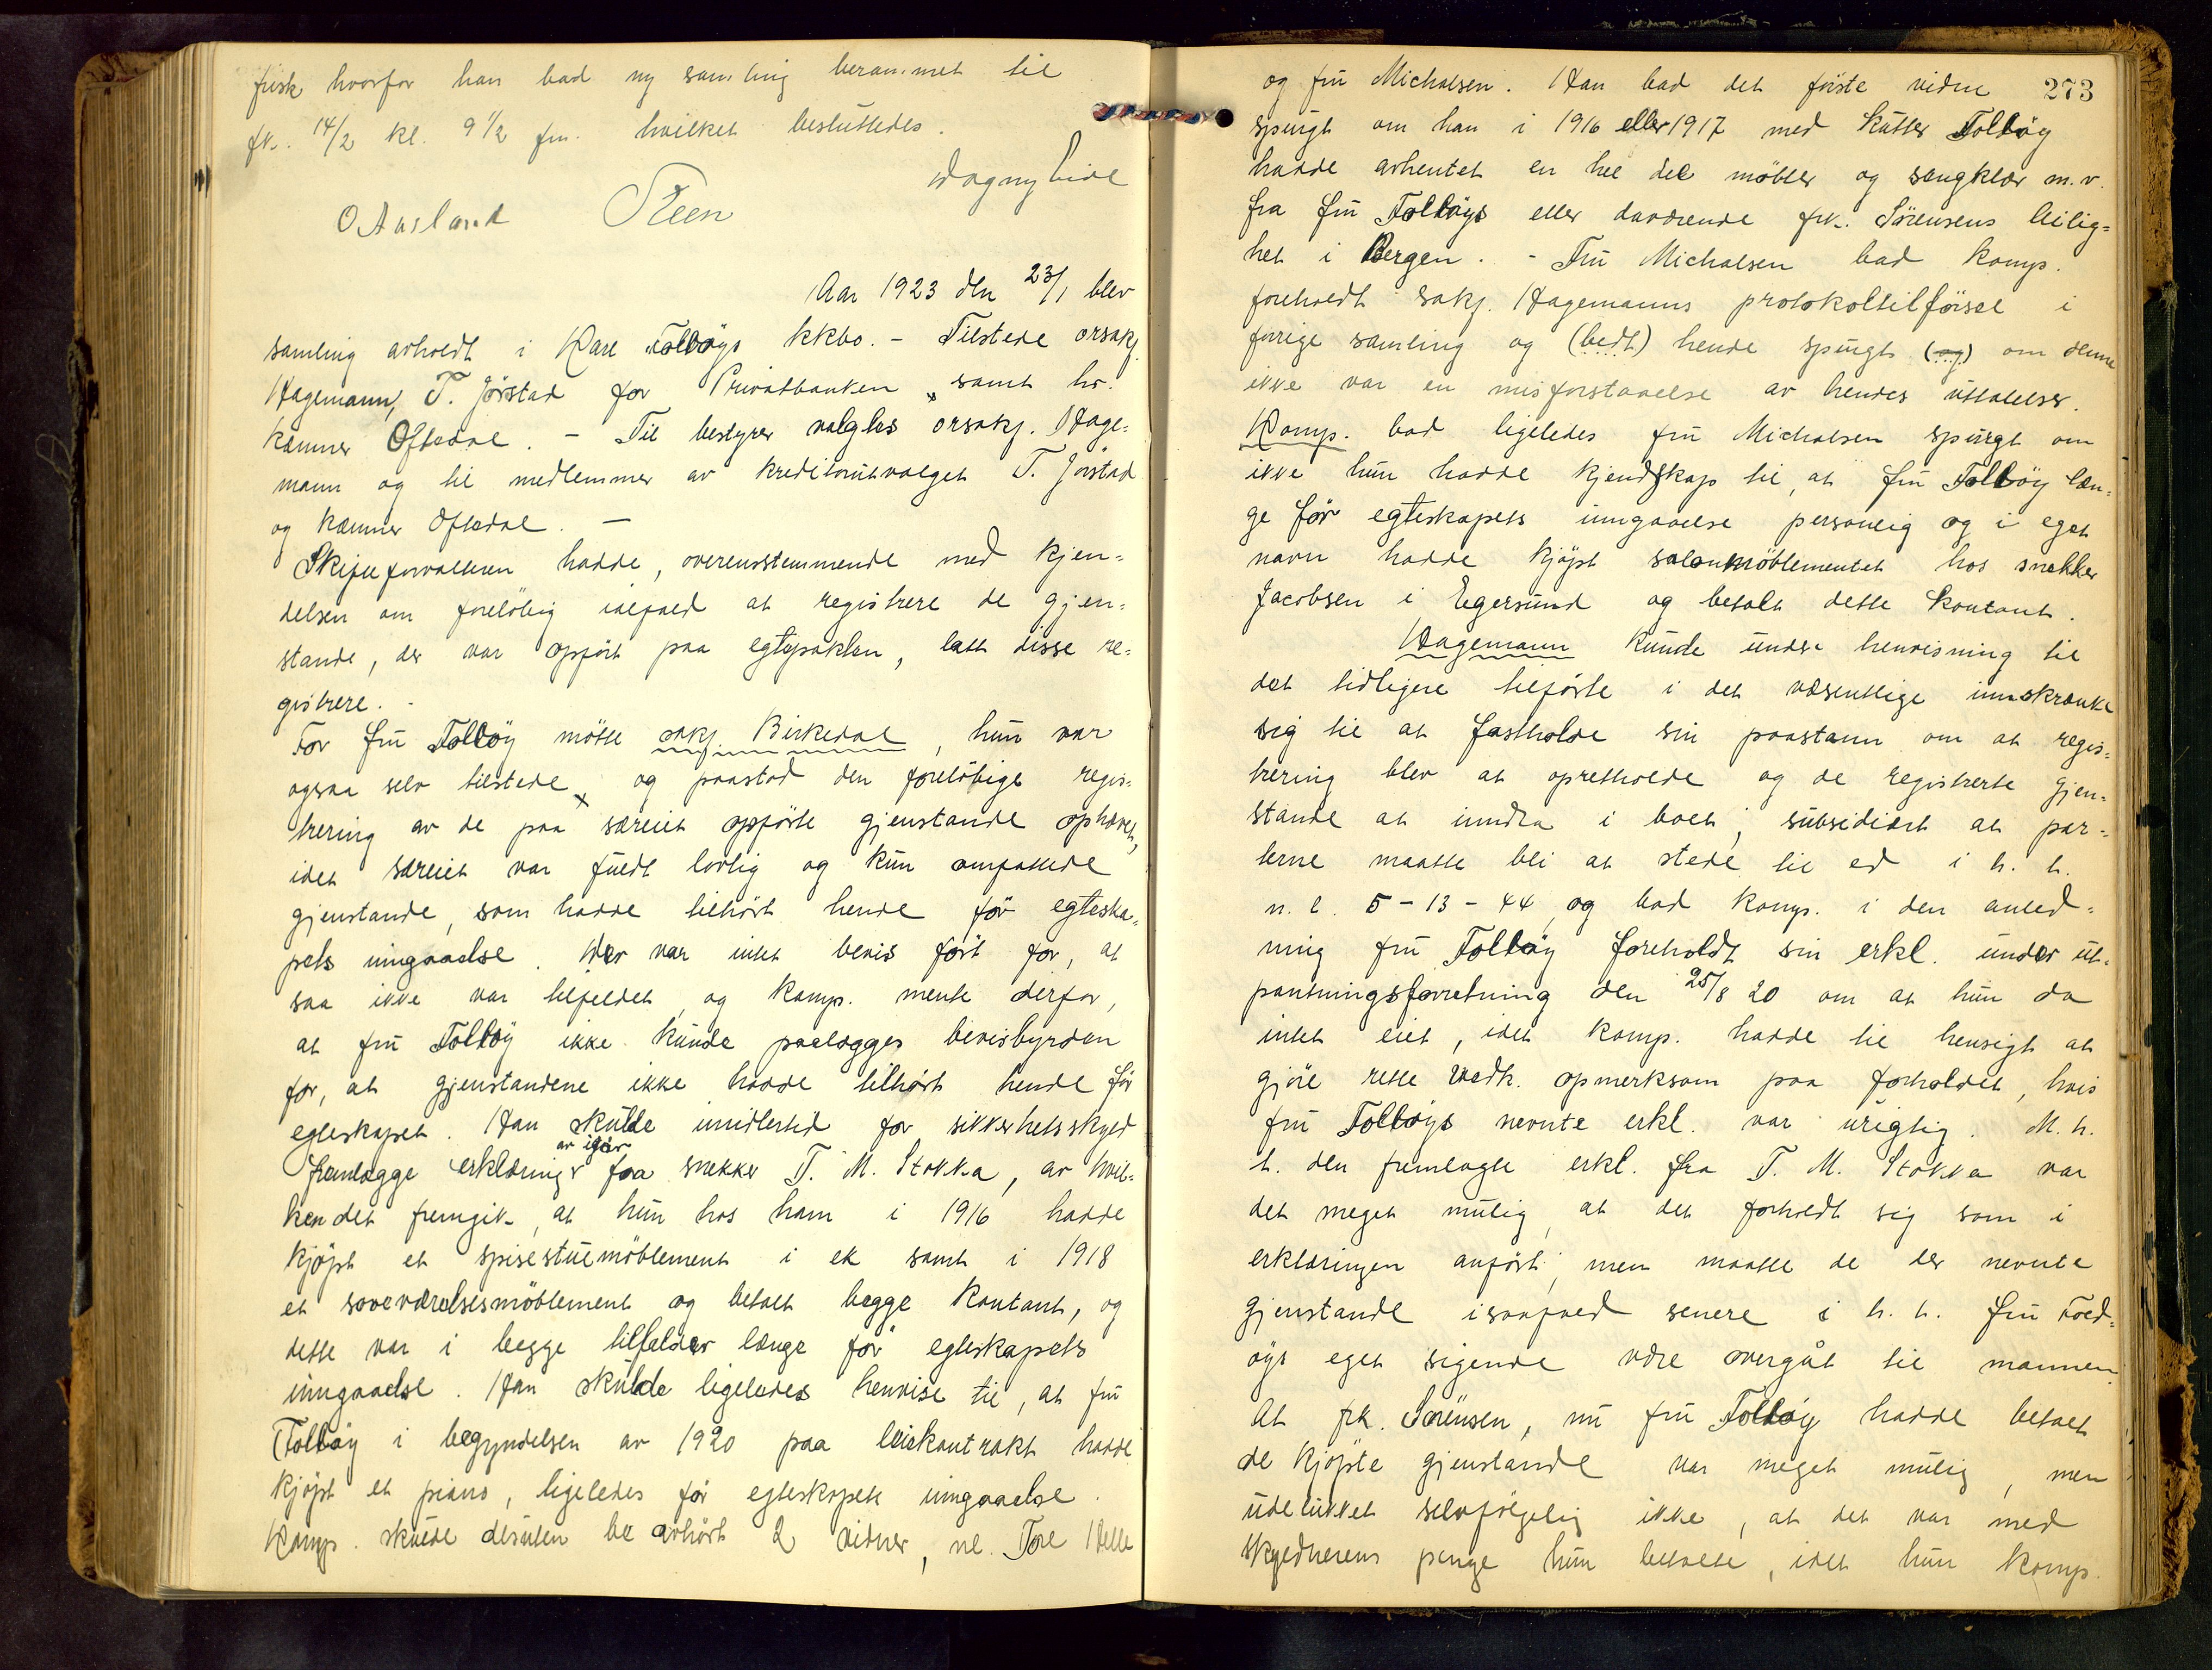 frisk hvorfor han bad ny samling berammet til
fk. 14/2 kl. 9 1/2 fm. hvilket besluttedes.
Dagny Eide
O Ausland Steen
Aar 1923 den 23/1 blev
samling avholdt i Karl Folköys kkbo. - Tilstede orsakf.
Hagemann, T. Jörstad for Privatbanken x samt hr.
kæmner Oftedal. - Til bestyrer valgtes orsakf. Hage=
mann og til medlemmer av kreditorutvalget T. Jörstad
og kæmner Oftedal. -
Skifteforvalteren hadde, overensstemmende med kjen=
delsen om foreløbig ialfald at registrere de gjen=
stande, der var opfört paa egtepakten, latt disse re=
gistrere. -
For fru Folköy møtte sakf. Birkedal, hun var
ogsaa selv tilstede x og paastod den foreløbige regis=
trering av de paa særeiet opförte gjenstande ophævet,
idet særeiet var fuldt lovlig og kun omfattede
gjenstande, som hadde tilhört hende för egteska=
pets inngaaelse. Der var intet bevis fört for, at
saa ikke var tilfeldet, og komp. mente derfor,
at fru Folköy ikke kunde paalægges bevisbyrden
for, at gjenstandene ikke hadde tilhört hende för
egteskapet. Han skulde imidlertid for sikkerhets skyld
av igår
fremlægge erklæring fra snekker T. M. Stokka, av hvil=
ken det fremgik, at hun hos ham i 1916 hadde
kjöpt et spisestuemöblement i ek samt i 1918
et soveværelsesmöblement og betalt begge kontant, og
dette var i begge tilfelder længe för egteskapets
inngaaelse. Han skulde ligeledes henvise til, at fru
Folköy i begyndelsen av 1920 paa leiekontrakt hadde
kjöpt et piano, ligeledes för egteskapets inngaaelse.
Komp. skulde desuten be avhört 2 vidner, nl. Tore Helle
273
og fru Michalsen. Han bad det förste vidne
spurgt om han i 1916 eller 1917 med kutter Folköy
hadde avhentet en hel del möbler og sengklær m.v.
fra fru Folköys eller daværende frk. Sörensens leilig=
het i Bergen. - Fru Michalsen bad komp.
foreholdt sakf. Hagemanns protokoltilförsel i
forrige samling og (bedt) hende spurgt (og) om denne
ikke var en misforstaaelse av hendes uttalelser.
Komp. bad ligeledes fru Michalsen spurgt om
ikke hun hadde kjendskap til, at fru Folköy læn=
ge för egteskapets inngaaelse personlig og i eget
navn hadde kjöpt salonmöblementet hos snekker
Jacobsen i Egersund og betalt dette kontant.
Hagemann kunde under henvisning til
det tidligere tilförte i det væsentlige innskrænke
sig til at fastholde sin paastann om at regis=
trering blev at opretholde og de registrerte gjen=
stande at inndra i boet, subsidiært at par=
terne maatte bli at stede til ed i h. t.
n. l. 5-13-44, og bad komp. i den anled=
ning fru Folköy foreholdt sin erkl. under ut=
pantningsforretning den 25/8 20 om at hun da
intet eiet, idet komp. hadde til hensigt at
gjöre rette vedk. opmerksom paa forholdet, hvis
fru Folköys nevnte erkl. var urigtig. M. h.
t. den fremlagte erkl. fra T. M. Stokka var
det meget mulig, at det forholdt sig som i
erklæringen anfört, men maatte de der nevnte
gjenstande isaafald senere i h. t. fru Fold=
öys eget sigende være overgåt til mannen.
At frk. Sörensen, nu fru Folköy hadde betalt
de kjöpte gjenstande var meget mulig, men
utelukket selvfölgelig ikke, at det var med
skyldnerens penge hun betalte, idet hun komp.